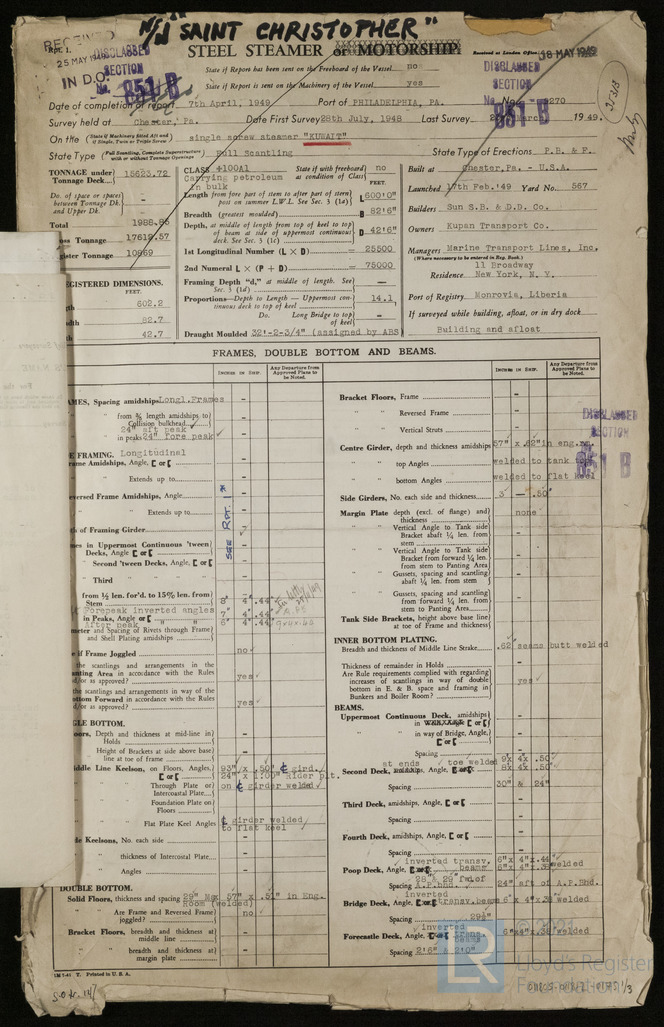 N/N "SAINT CHRISTOPHER"
Rpt. 1.
RECEIVED
25 MAY 1949
IN D.O.
DISCLASSED
SECTION
No. 851 B
STEEL STEAMER or MOTORSHIP.
Received at London Office 18 MAY 1949
State if Report has been sent on the Freeboard of the Vessel no
State if Report is sent on the Machinery of the Vessel yes
DISCLASSED
SECTION
851 B
Date of completion of report 7th April, 1949 Port of PHILADELPHIA, PA. No.
Survey held at Chester, Pa. Date First Survey 28th July, 1948 Last Survey 1949.
On the (State if Machinery fitted Aft and if Single, Twin or Triple Screw) single screw steamer "KUWAIT"
State Type (Full Scantling, Complete Superstructure with or without Tonnage Openings) Full Scantling State Type of Erections P.B. & F.
TONNAGE under Tonnage Deck 15623.72
Do. of space or spaces between Tonnage Dk. and Upper Dk. -
Total
Gross Tonnage
Register Tonnage
REGISTERED DIMENSIONS.
FEET.
602.2
82.7
42.7
CLASS +100A1 State if with freeboard as condition of Class no
Carrying petroleum in bulk
FEET.
Length from fore part of stem to after part of stern post on summer L.W.L. See Sec. 3 (1a) L 600'0"
Breadth (greatest moulded) B 82'6"
Depth, at middle of length from top of keel to top of beam at side of uppermost continuous deck. See Sec. 3 (1c) D 42'6"
1st Longitudinal Number (L × D) 25500
2nd Numeral L × (B + D) 75000
Framing Depth "d," at middle of length. See Sec. 3 (1d) -
Proportions—Depth to Length — Uppermost continuous deck to top of keel 14.1
Do. Long Bridge to top of keel -
Draught Moulded 32'-2-3/4" (assigned by ABS)
Built at Chester, Pa. - U.S.A.
Launched 17th Feb.'49 Yard No. 567
Builders Sun S.B. & D.D. Co.
Owners Kupan Transport Co.
Managers Marine Transport Lines, Inc.
(Where necessary to be entered in Reg. Book.)
11 Broadway
Residence New York, N. Y.
Port of Registry Monrovia, Liberia
If surveyed while building, afloat, or in dry dock
Building and afloat
FRAMES, DOUBLE BOTTOM AND BEAMS.
INCHES IN SHIP.
Any Departure from Approved Plans to be Noted.
INCHES IN SHIP.
Any Departure from Approved Plans to be Noted.
FRAMES, Spacing amidships Longl.Frames -
from ⅗ length amidships to Collision bulkhead -
24" aft peak
in peaks 24" fore peak
FRAMING. Longitudinal
Frame Amidships, Angle, [ or [
Extends up to
Reversed Frame Amidships, Angle
Extends up to
of Framing Girder
SEE RPT. 1*
in Uppermost Continuous 'tween Decks, Angle [ or [
Second 'tween Decks, Angle [ or [
Third
from ½ len. for'd. to 15% len. from Stem 8" 4" .44"
Forepeak inverted angles
in Peaks, Angle or [ 7" 4" .44"
After peak 6" 4" .44"
Diameter and Spacing of Rivets through Frame and Shell Plating amidships -
if Frame Joggled no
the scantlings and arrangements in the Panting Area in accordance with the Rules and/or as approved? yes
the scantlings and arrangements in way of the Bottom Forward in accordance with the Rules and/or as approved? yes
SINGLE BOTTOM.
Floors, Depth and thickness at mid-line in Holds -
Height of Brackets at side above base line at top of frame -
Middle Line Keelson, on Floors, Angles, [ or [ 93" x .50" ¢ gird.
24" x 1'00" Rider pl.
Through Plate or Intercostal Plate on ¢ girder welded
Foundation Plate on Floors -
Flat Plate Keel Angles ¢ girder welded to flat keel
Side Keelsons, No. each side -
thickness of Intercostal Plate -
Angles -
DOUBLE BOTTOM.
Solid Floors, thickness and spacing 29" Max 57" x .51" in Eng. Room (welded)
Are Frame and Reversed Frame joggled? no
Bracket Floors, breadth and thickness at middle line -
breadth and thickness at margin plate -
Bracket Floors, Frame -
Reversed Frame -
Vertical Struts -
Centre Girder, depth and thickness amidships 57" x .62" in eng.rm.
top Angles welded to tank top
bottom Angles welded to flat keel
Side Girders, No. each side and thickness 3 — .50"
Margin Plate depth (excl. of flange) and thickness none
Vertical Angle to Tank side Bracket abaft ¼ len. from stem -
Vertical Angle to Tank side Bracket from forward ¼ len. from stem to Panting Area -
Gussets, spacing and scantling abaft ¼ len. from stem -
Gussets, spacing and scantling from forward ¼ len. from stem to Panting Area -
Tank Side Brackets, height above base line at toe of Frame and thickness -
INNER BOTTOM PLATING.
Breadth and thickness of Middle Line Strake .62 seams butt welded
Thickness of remainder in Holds -
Are Rule requirements complied with regarding increases of scantlings in way of double bottom in E. & B. space and framing in Bunkers and Boiler Room? yes
BEAMS.
Uppermost Continuous Deck, amidships -
in way of Bridge, Angle, [ or [ -
Spacing -
at ends toe welded 9x 4x .50"
Second Deck, amidships, Angle, 8x 4x .50"
Spacing 30" & 24"
Third Deck, amidships, Angle, [ or [ -
Spacing -
Fourth Deck, amidships, Angle, [ or [ -
Spacing -
inverted transv. 6"x 4"x.44"
Poop Deck, Angle, beams 6"x 4"x.38 welded
28" & 29" fwd of
Spacing A.P.bhd. 24" aft of A.P.Bhd.
inverted
Bridge Deck, Angle, transv.beams 6"x 4"x.38 welded
Spacing 29½"
inverted
Forecastle Deck, Angle, trans. beams 6"x4"x.38" welded
Spacing 2'6" & 2'0"
DISCLASSED
SECTION
851 B
1M 7-45 T. Printed in U.S.A.
LR
© 2021
Lloyd's Register
Foundation
1/3